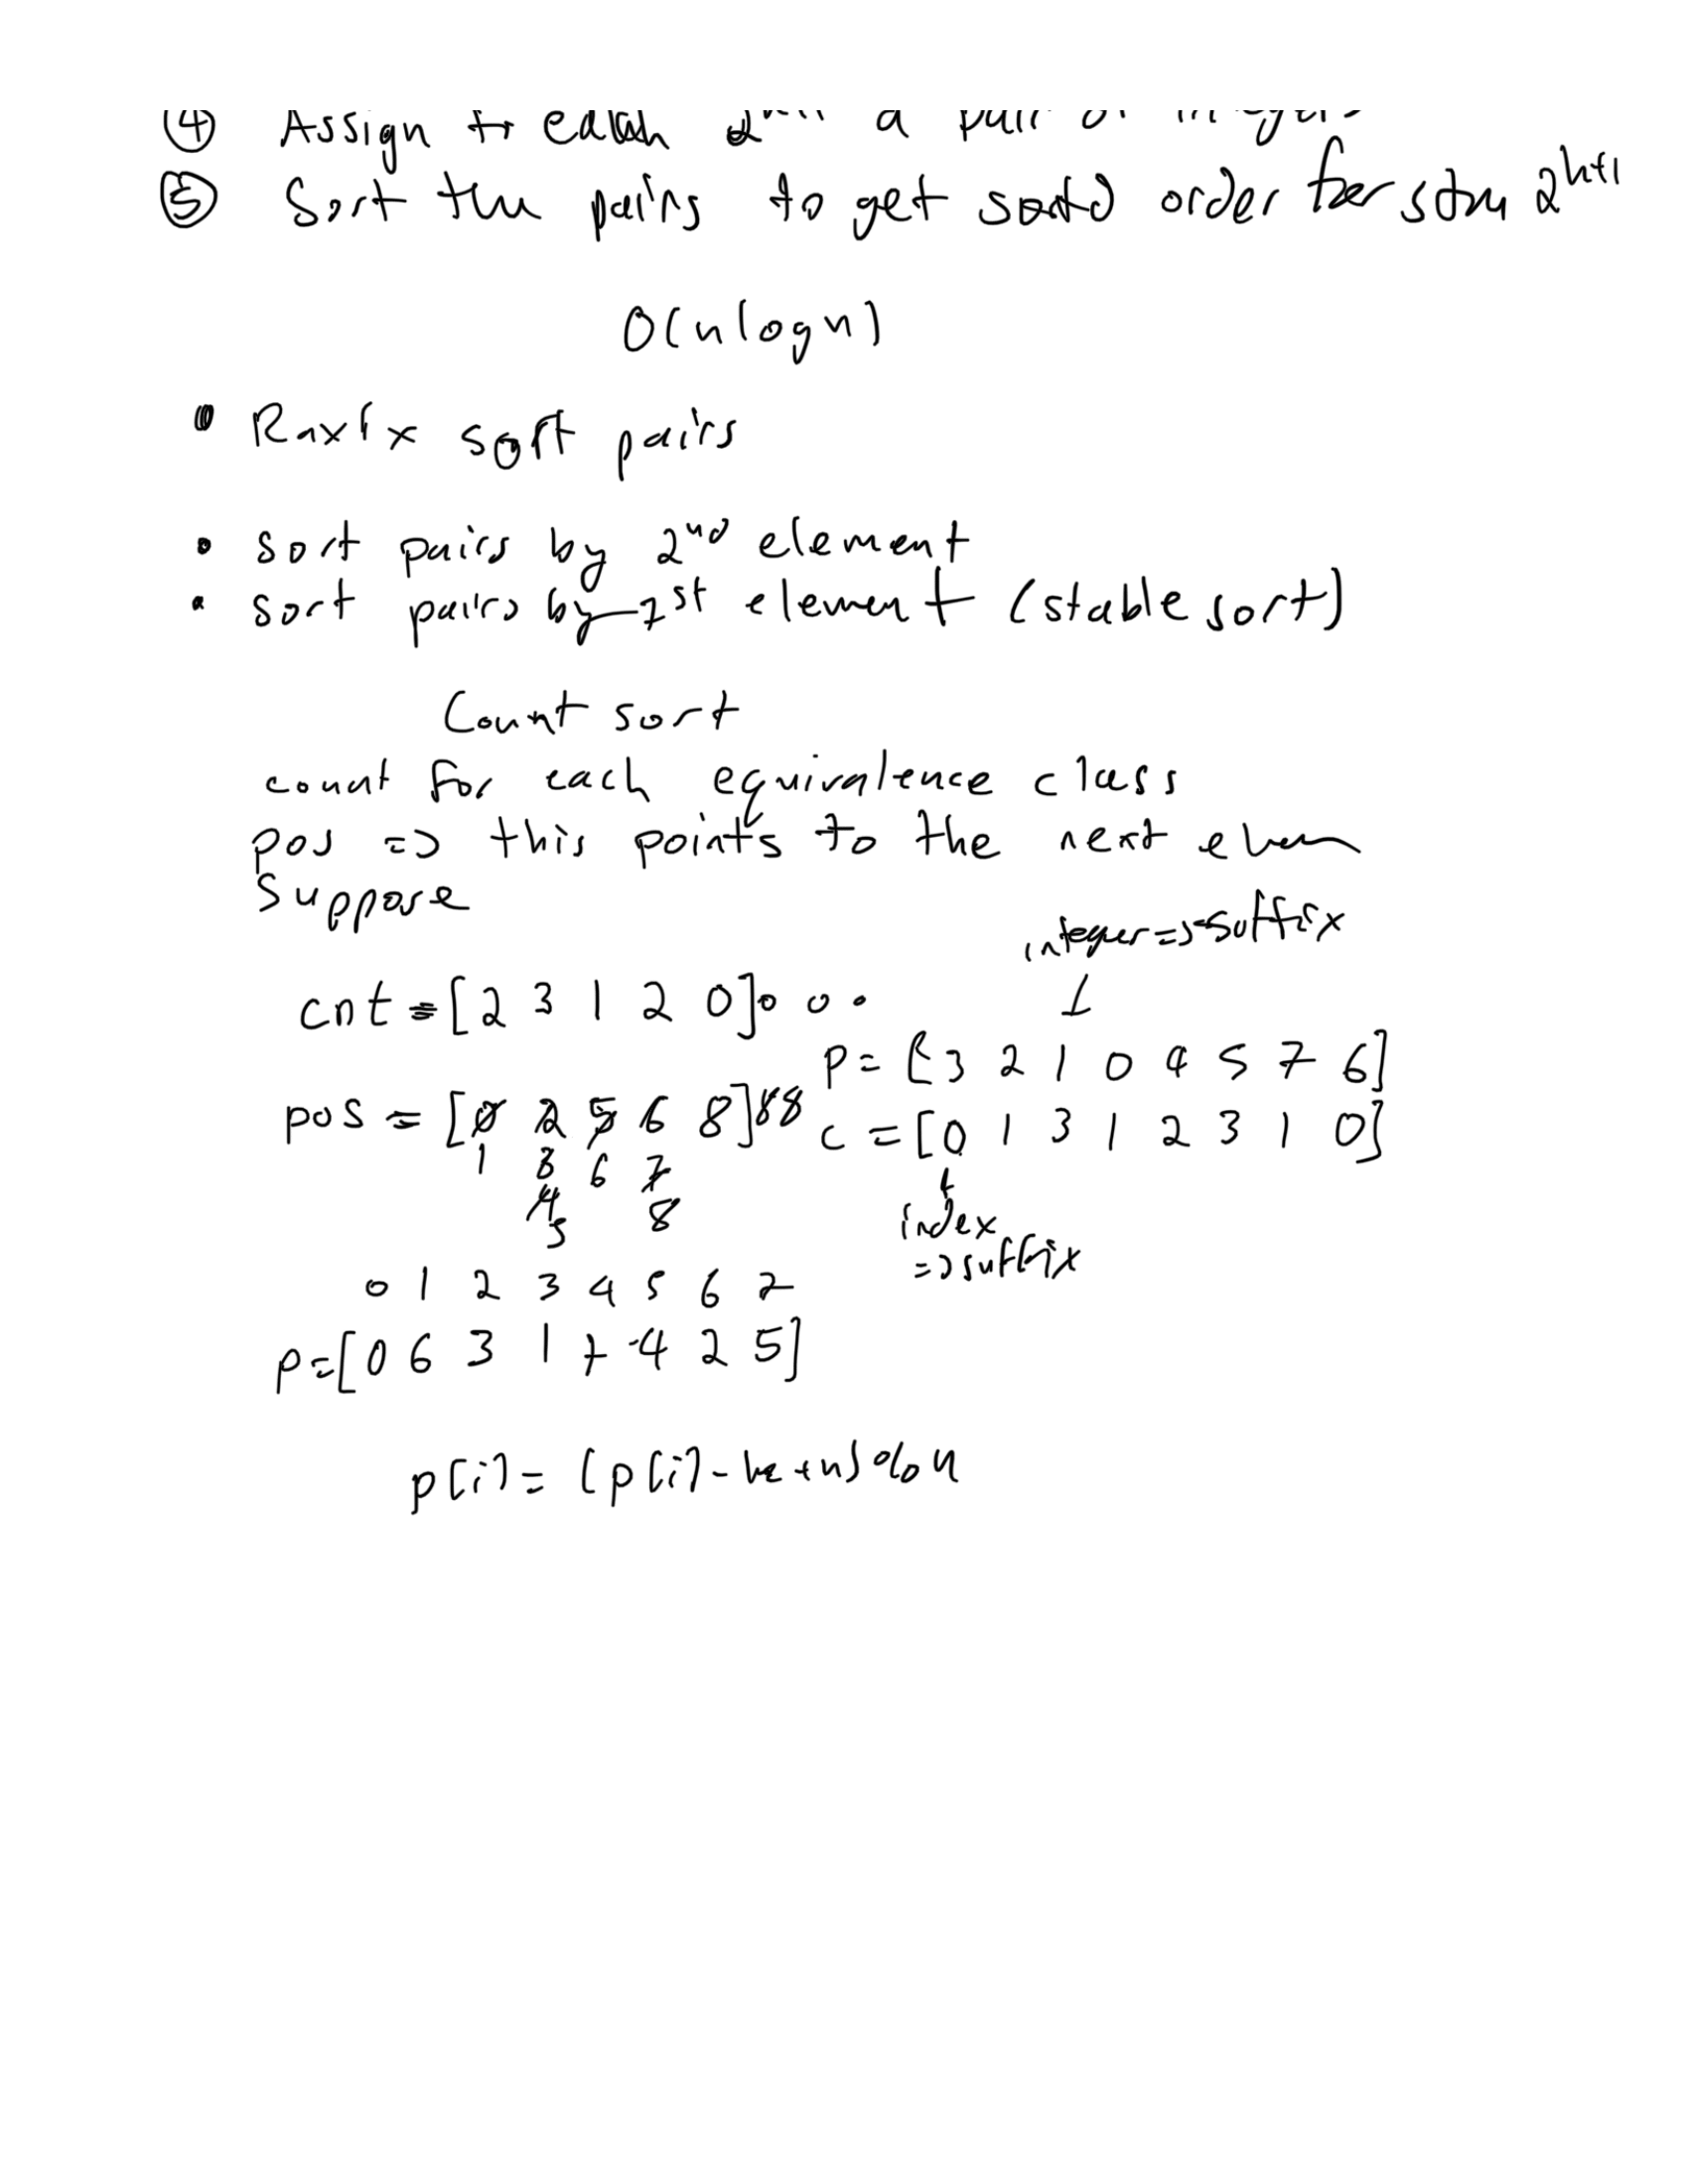 ④ Assign to each 2 a pair of integers
⑤ Sort the pairs to get sortd order for 2^k+1
O(nlogn)
• Raxix sort pairs
• sort pairs by 2nd element
• sort pairs by 1st element (stable sort)
Count sort
count for each equivalence class
pos => this points to the next elem
Suppose
integer => suffix
cnt = [2 3 1 2 0] 0 0 .
p = [3 2 1 0 4 5 7 6]
pos = [0 2 5 6 8] 8 8
c = [0 1 3 1 2 3 1 0]
1 3 6 7
4 8
5
index
=> suffix
0 1 2 3 4 5 6 7
p = [0 6 3 1 7 4 2 5]
p[i] = (p[i] - k + n) % n